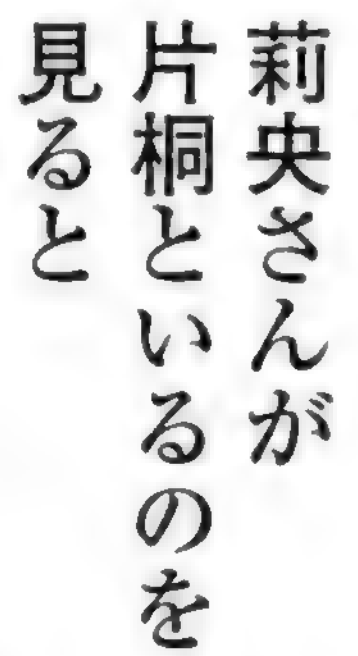 莉央さんが
片桐といるのを
見ると